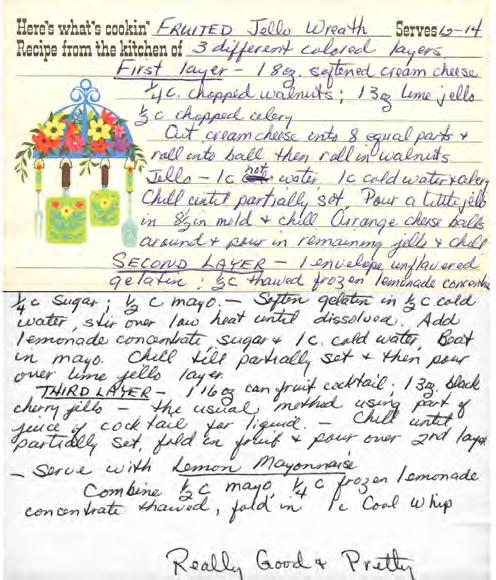 Here's what's cookin' Fruited Jello Wreath Serves 10-14
Recipe from the kitchen of 3 different colored layers
First layer - 1 8oz. softened cream cheese
1/4 c. chopped walnuts; 1 3oz lime jello
1/2 c chopped celery
Cut cream cheese into 8 equal parts &
roll into ball, then roll in walnuts
Jello - 1c hot water 1c cold water & celery
Chill until partially set. Pour a little jello
in 8 1/2 in mold & chill Arrange cheese balls
around & pour in remaining jello & chill
SECOND LAYER - 1 envelope unflavored
gelatin; 1/2 c thawed frozen lemonade concentrate
1/4 c sugar; 1/2 c mayo. - Soften gelatin in 1/2 c cold
water, stir over low heat until dissolved. Add
lemonade concentrate sugar & 1c. cold water. Beat
in mayo. Chill till partially set & then pour
over lime jello layer.
THIRD LAYER - 1 16oz can fruit cocktail; 1 3oz. black
cherry jello - the usual method using part of
juice of cocktail for liquid. - Chill until
partially set, fold in fruit & pour over 2nd layer
- Serve with Lemon Mayonnaise
Combine 1/2 c mayo, 1/4 c frozen lemonade
concentrate thawed, fold in 1c Cool Whip
Really Good & Pretty